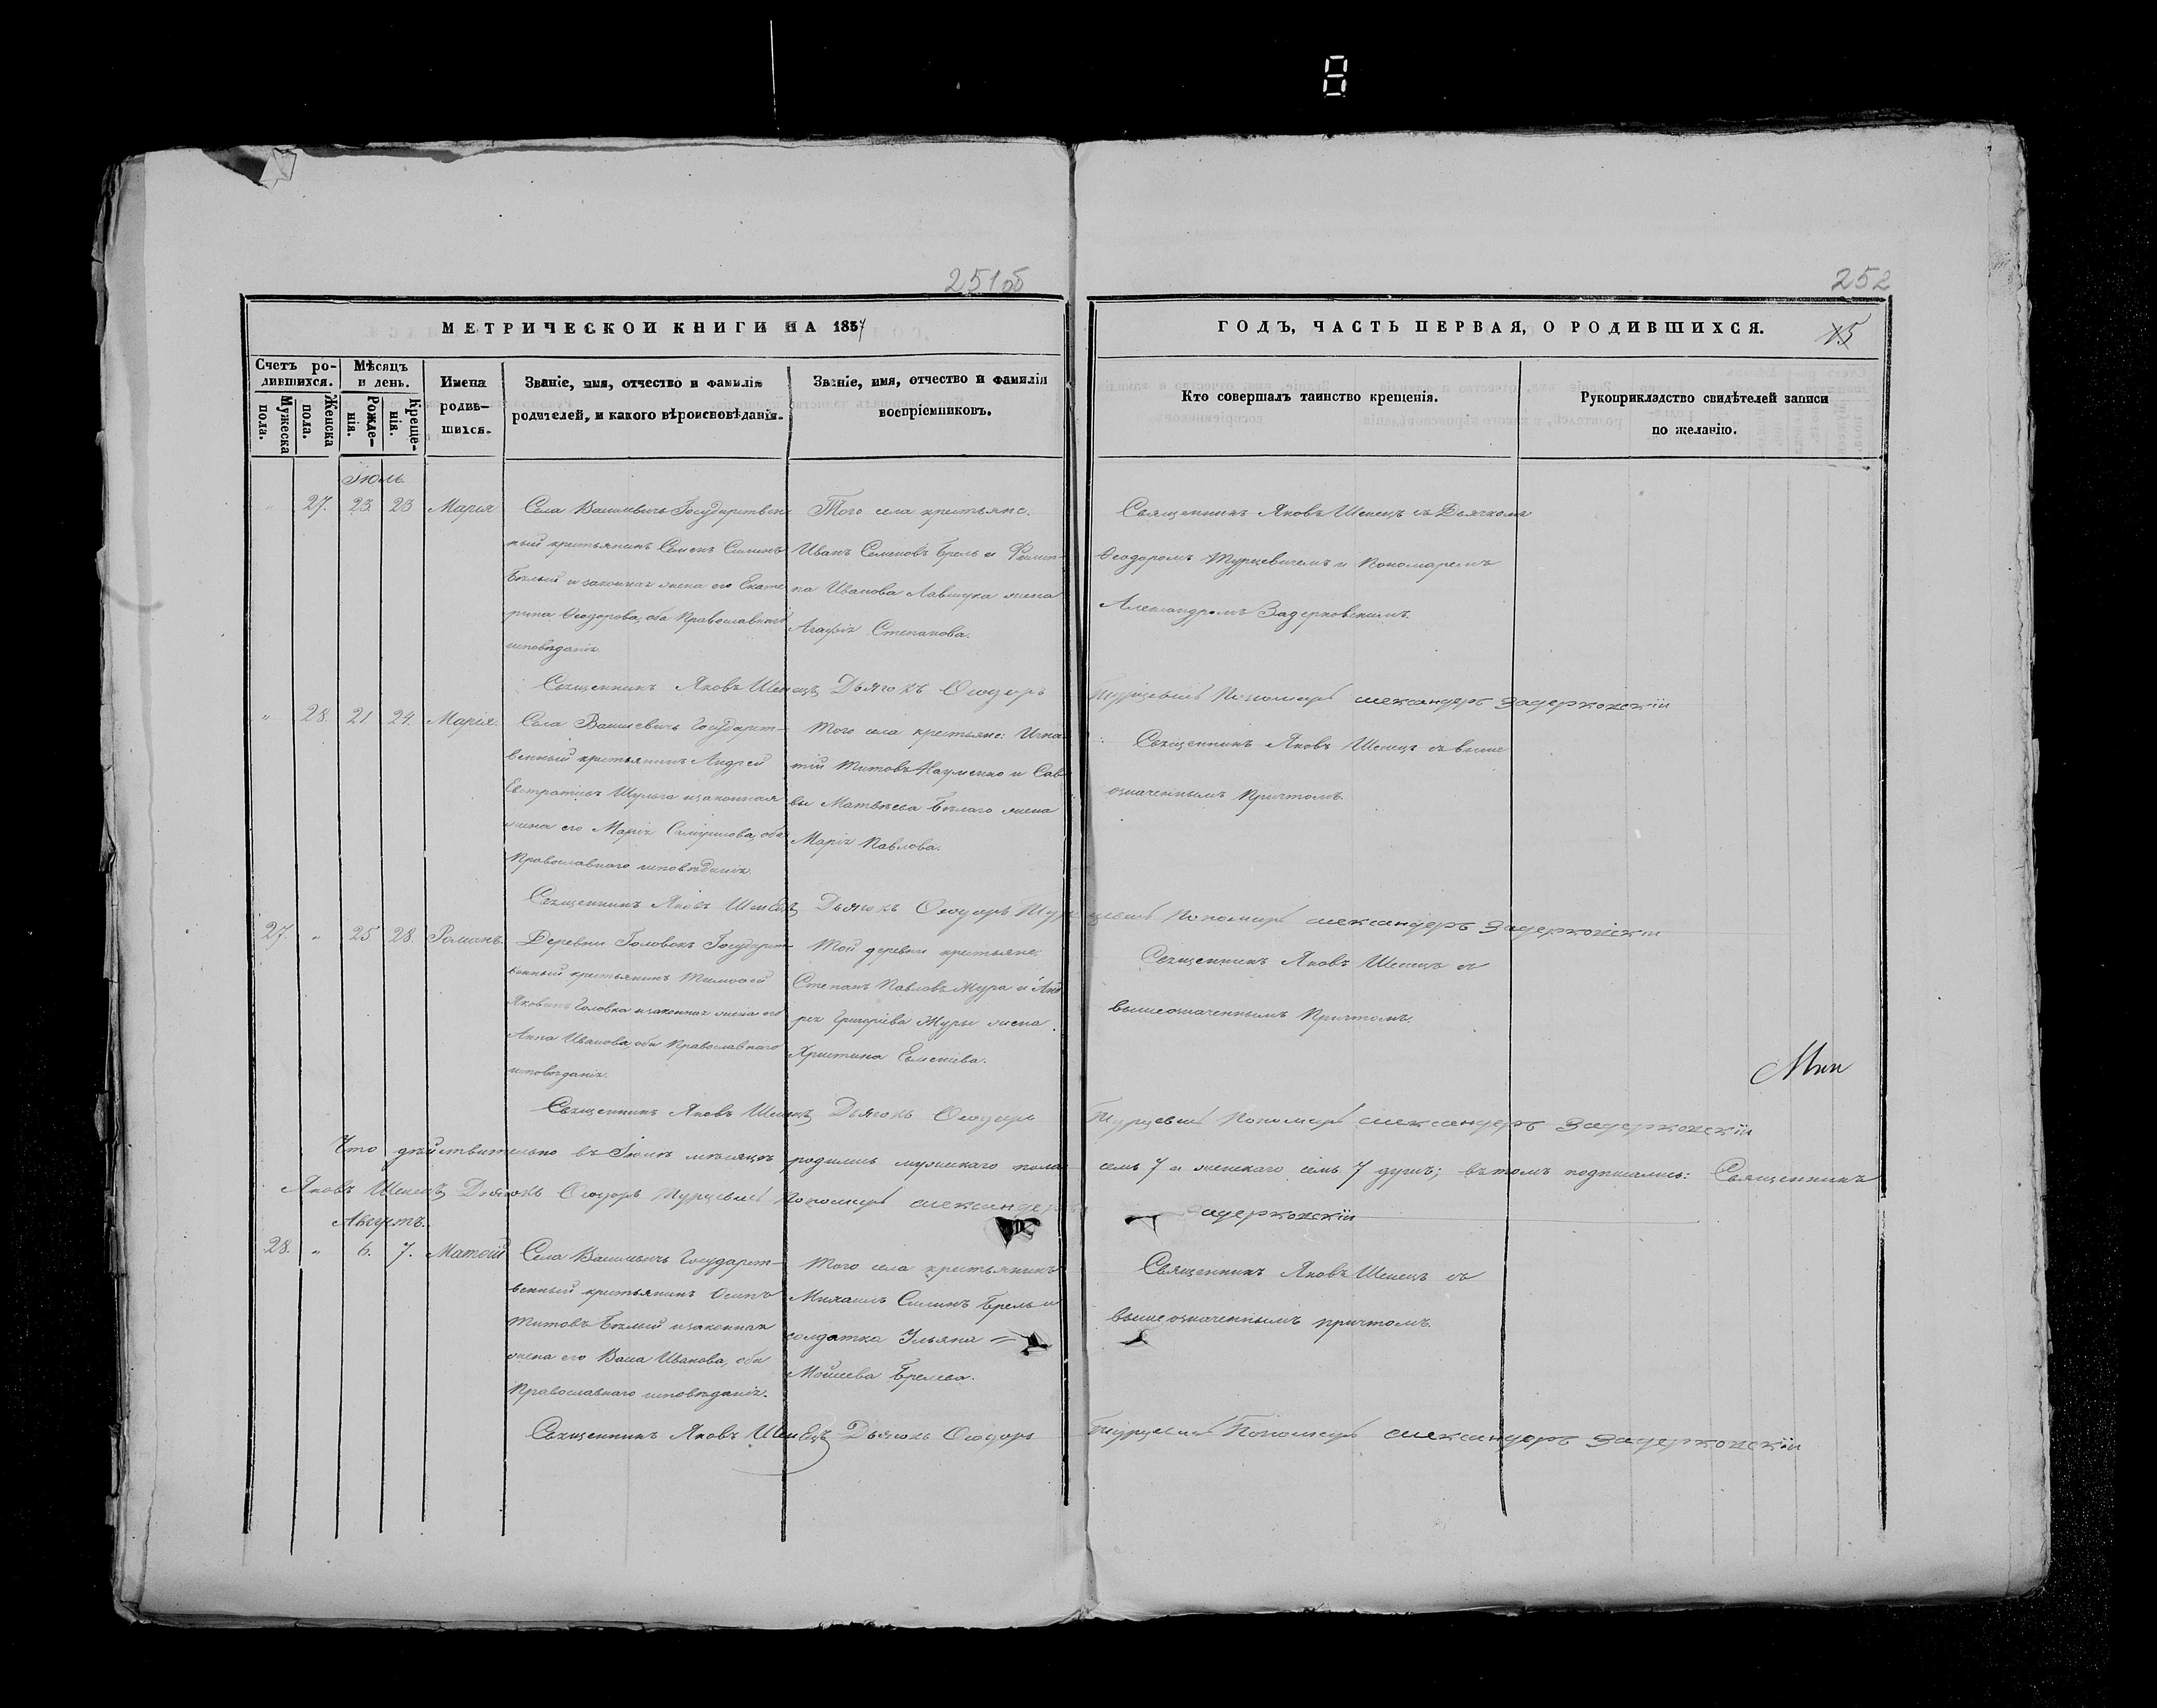 251об
252
МЕТРИЧЕСКОЙ КНИГИ НА 1857
ГОДЪ, ЧАСТЬ ПЕРВАЯ, О РОДИВШИХСЯ.
15
Счетъ ро-
дившихся.
Мужеска
пола.
Женска
пола.
Мѣсяцъ
и день.
Рожде-
нія.
Креще-
нія.
Имена
родив-
шихся.
Званіе, имя, отчество и фамилія
родителей, и какого вѣроисповѣданія.
Званіе, имя, отчество и фамилія
воспріемниковъ.
Кто совершалъ таинство крещенія.
Рукоприкладство свидѣтелей записи
по желанію.
Іюль
" 27. 23. 23 Марія
Села Василевичъ Государствен-
ный крестьянинъ Семенъ Силинъ
Бѣлый и законная жена его Екате
рина Ѳеодорова, оба Православнаго
исповѣданія.
Того села крестьяне.
Иванъ Семеновъ Брель и Филип-
па Иванова жена
Агафія Степанова.
Священникъ Яковъ Шепецъ съ Дьячкомъ
Ѳеодоромъ Турцевичемъ и Пономаремъ
Александромъ Задерковскимъ.
Священникъ Яковъ Шепецъ Дьячокъ Ѳеодоръ Турцевичъ Пономарь Александръ Задерковскій
" 28. 21 24. Марія.
Села Василевичъ Государст-
венный крестьянинъ Андрей
Евстратіевъ Шульга и законная
жена его Марія оба
Православнаго исповѣданія.
Того села крестьяне: Игна-
тій Титовъ Науменко и Сав-
вы Матвѣева Бѣлаго жена
Марія Павлова.
Священникъ Яковъ Шепецъ съ выше
означеннымъ Причтомъ.
Священникъ Яковъ Шепецъ Дьячокъ Ѳеодоръ Турцевичъ Пономарь Александръ Задерковскій
27. " 25 28. Романъ.
Деревни Головокъ Государст-
венный крестьянинъ Тимоѳей
Яковинъ Головко и законная жена его
Анна Иванова, оба Православнаго
исповѣданія.
Той деревни крестьяне.
Степанъ Павловъ Жура и Анд
рея Григоріева Журы жена
Христина
Священникъ Яковъ Шепецъ съ
вышеозначеннымъ Причтомъ.
Священникъ Яковъ Шепецъ Дьячокъ Ѳеодоръ Турцевичъ Пономарь Александръ Задерковскій
Что дѣйствительно въ Іюлѣ мѣсяцѣ родилось мужескаго пола семь 7 и женскаго семь 7 душъ; въ томъ подписались: Священникъ
Яковъ Шепецъ Дьячокъ Ѳеодоръ Турцевичъ Пономарь Александръ Задерковскій
Августъ.
28. " 6. 7. Матѳій
Села Василевичъ Государст-
венный крестьянинъ Осипъ
Титовъ Бѣлый и законная
жена его Васа Иванова, оба
Православнаго исповѣданія.
Того села крестьянинъ
Михаилъ Силинъ Брель и
солдатка Ульяна =
Моисеева Брелева.
Священникъ Яковъ Шепецъ съ
вышеозначеннымъ причтомъ.
Священникъ Яковъ Шепецъ Дьячокъ Ѳеодоръ Турцевичъ Пономарь Александръ Задерковскій